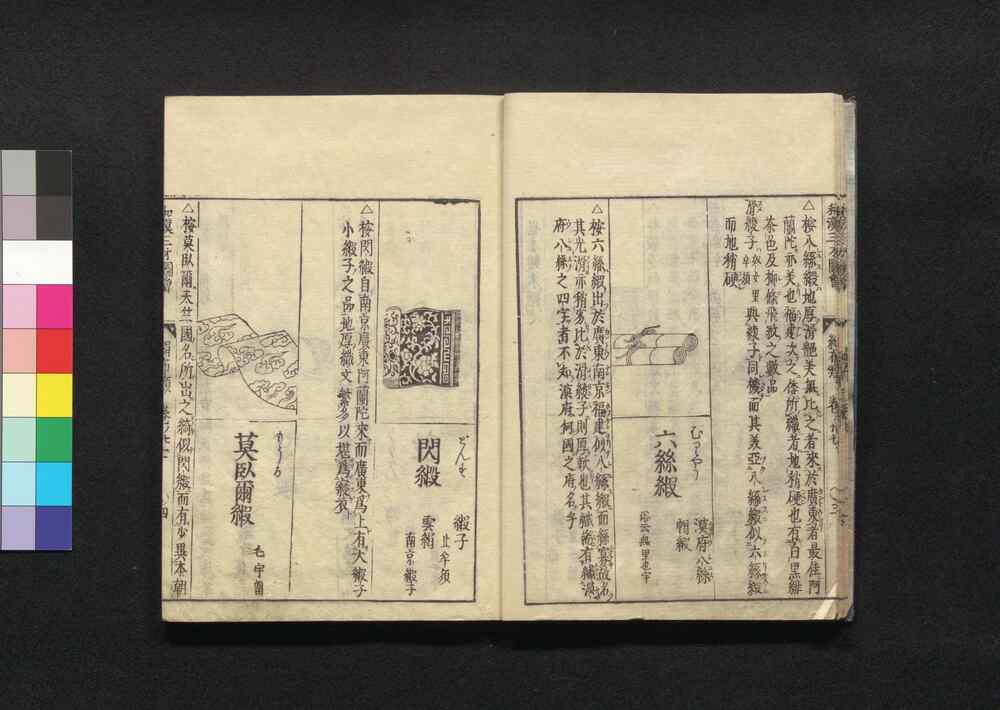 和漢三才圖會
△按八絲緞地厚滑艶美無比之者來於廣東者最佳阿
蘭陀亦美也福建次之倭所織者地稍硬也有白黒緋
茶色及柳條飛紋之數品
滑綾子 與綾子同機而其美亞八絲緞似六絲緞
而地稍硬
むりやう
六絲緞
漢府八絲
帽緞
俗云無里也宇
△按六絲緞出於廣東南京福建似八絲緞而絲寡故名
其光滑亦稍劣比於滑綾子則厚軟也其織
府八絲之四字者不知漢府何國之府名乎
どんす
閃緞
緞子
止牟須
雲綃
南京緞子
△按閃緞自南京廣東阿蘭陀來而廣東爲上有大緞子
小緞子之品地厚織文繁多以堪爲
もうる
莫臥爾緞
毛宇留
△按莫臥爾天竺國名所出之綺似閃緞而有少異本朝